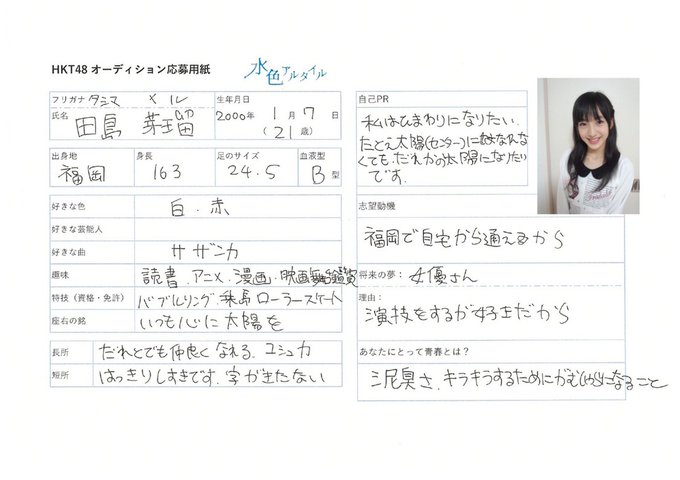 HKT48 オーディション応募用紙
水色アルタイル
フリガナ タシマ メル
氏名 田島 芽瑠
生年月日
2000年 1月 7日
(21歳)
出身地
福岡
身長
163
足のサイズ
24.5
血液型
B型
好きな色 白・赤
好きな芸能人
好きな曲 サザンカ
趣味 読書・アニメ・漫画・映画舞台鑑賞
特技(資格・免許) バブルリング・乗馬 ローラースケート
座右の銘 いつも心に太陽を
長所 だれとでも仲良くなれる、コミュ力
短所 はっきりしすぎです、字がきたない
自己PR
私はひまわりになりたい。
たとえ太陽(センター)になれなく
ても、だれかの太陽になりたい
です。
志望動機
福岡で自宅から通えるから
将来の夢: 女優さん
理由:
演技をするが好きだから
あなたにとって青春とは?
泥臭さ、キラキラするためにがむしゃらになること